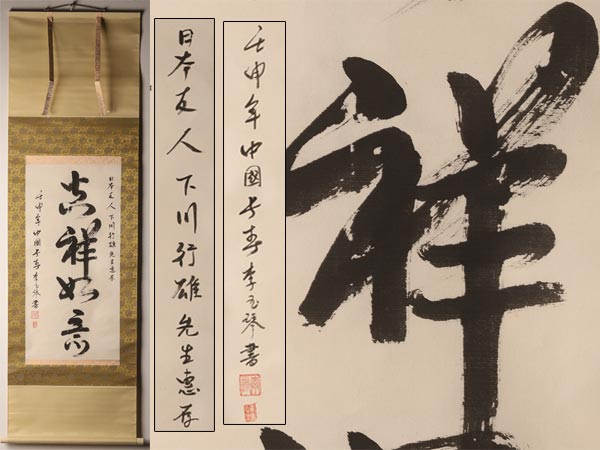 日本友人 下川行雄先生惠存
吉祥如意
壬申年中國长春李玉琴書
日本友人 下川行雄先生惠存
壬申年中國长春李玉琴書
祥